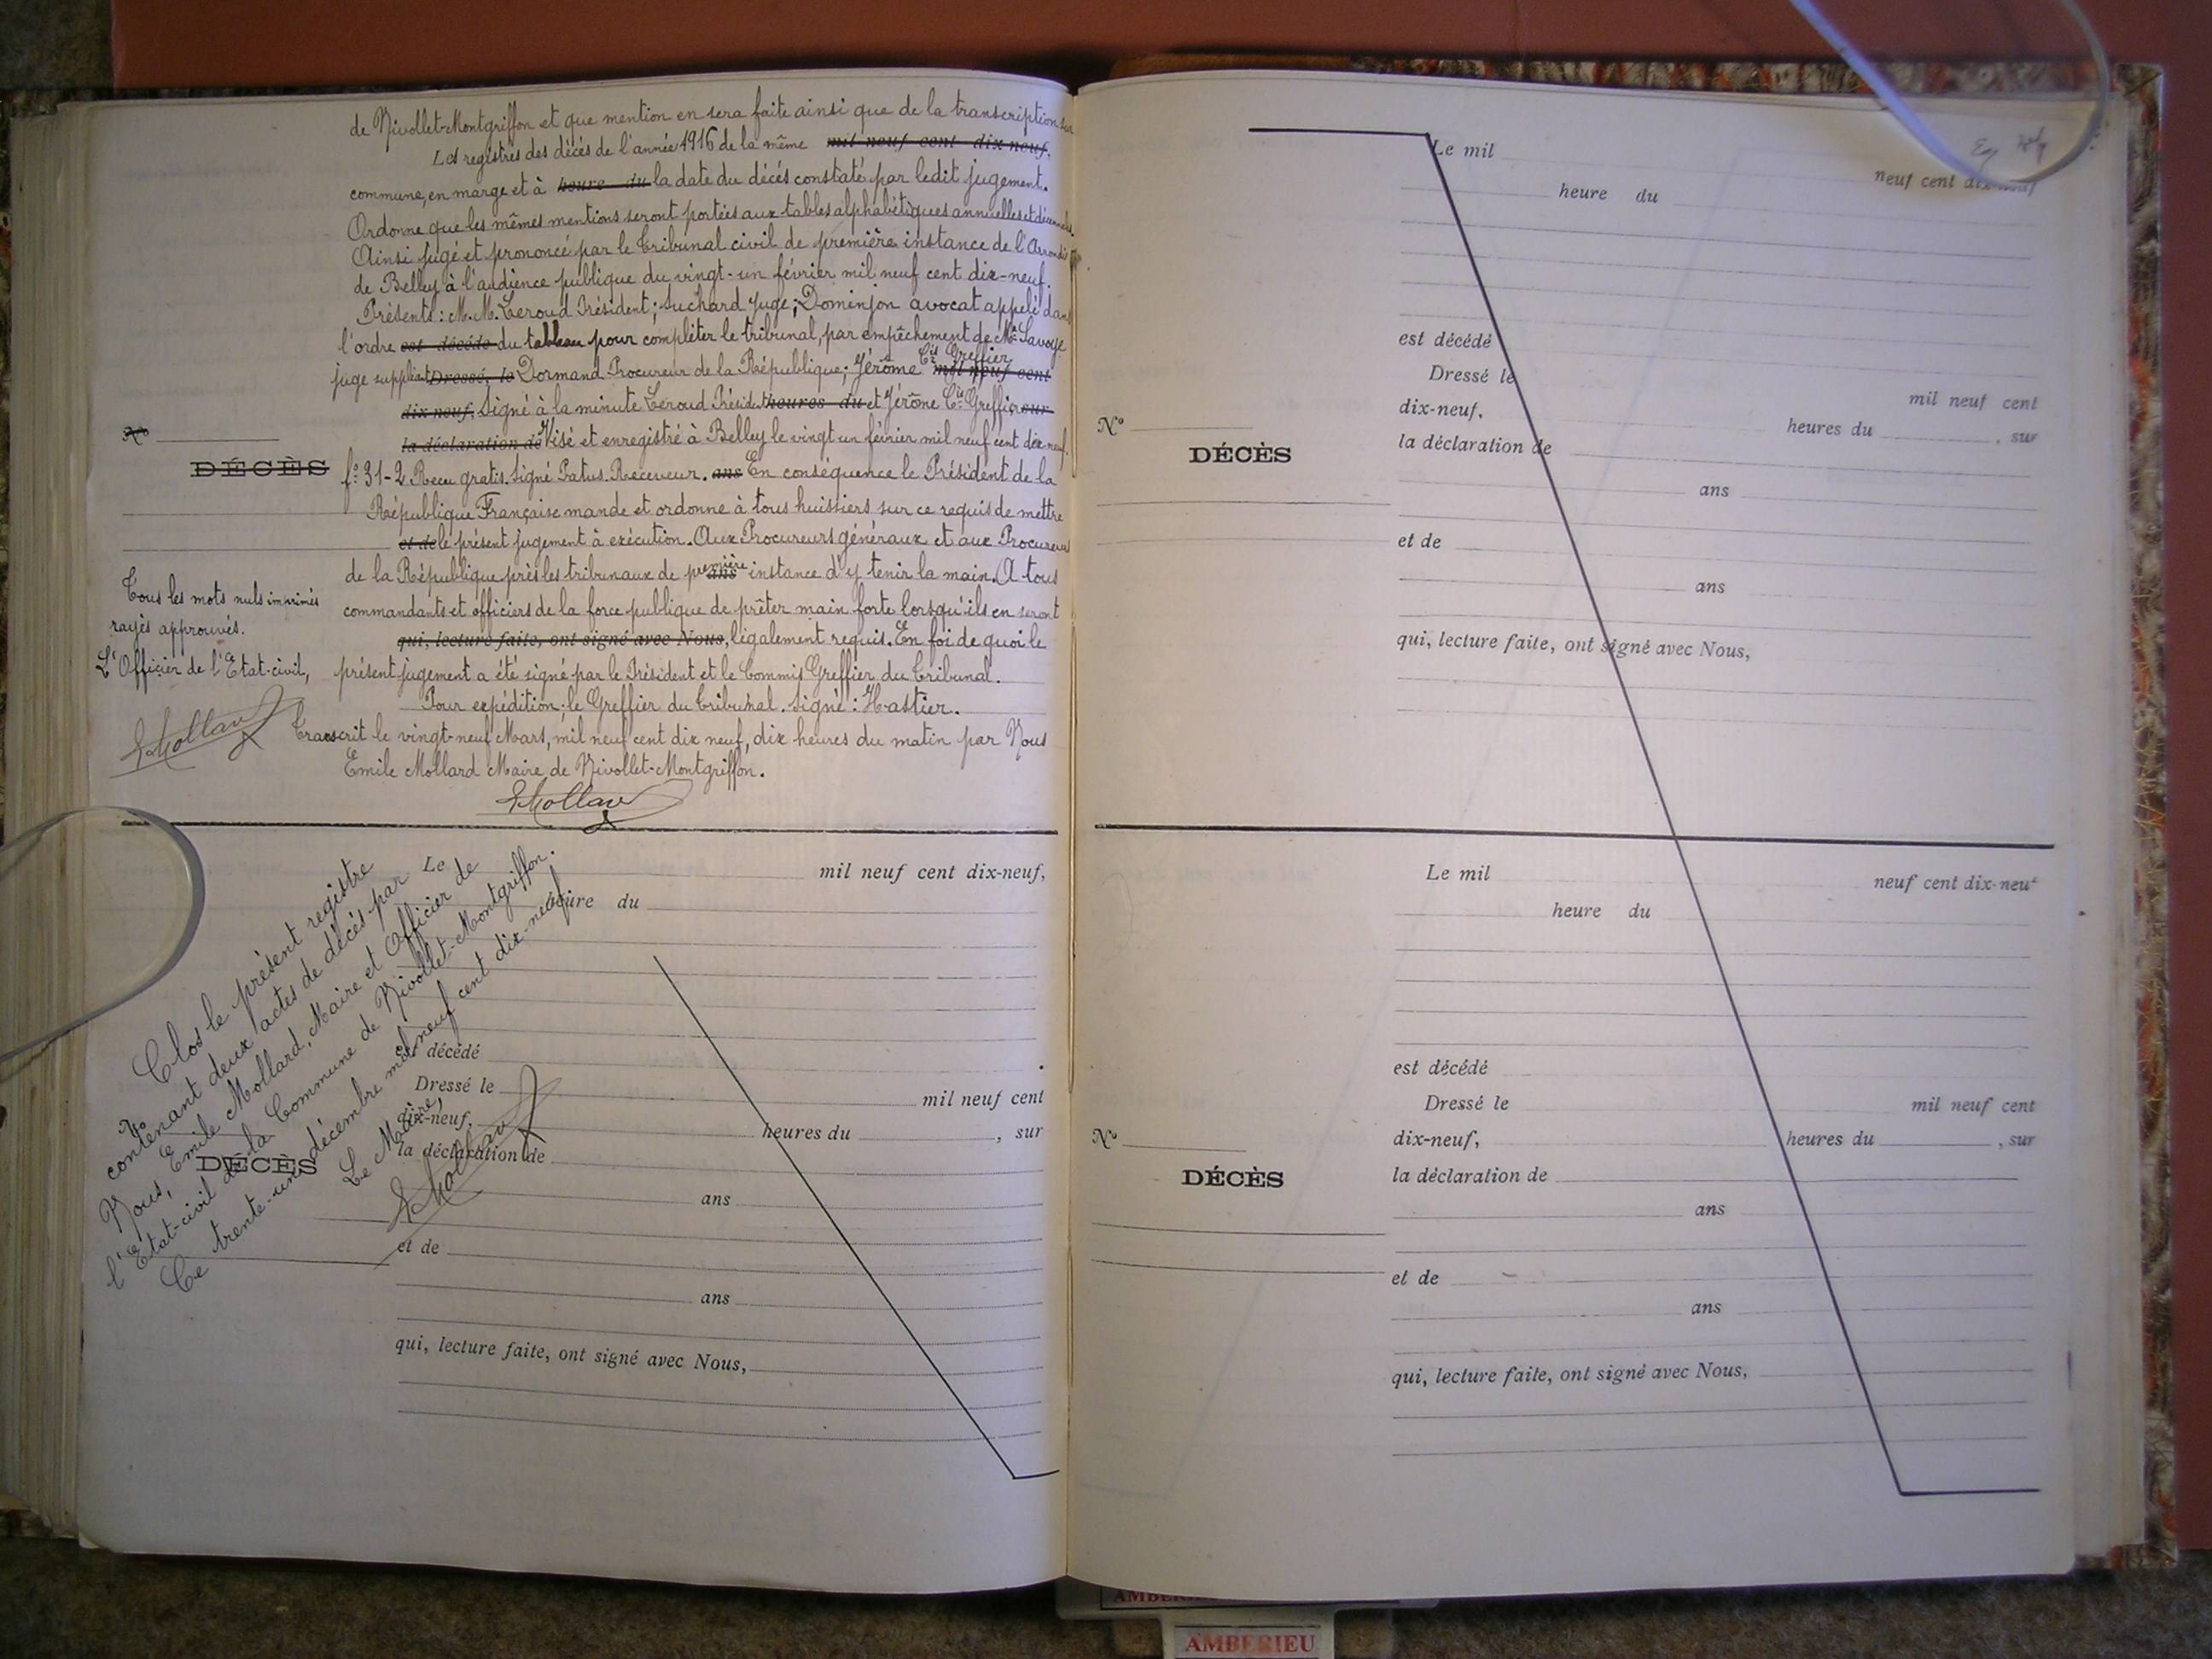 de Nivollet-Montgriffon et que mention en sera faite ainsi que de la transcription sur
Les registres des décès de l'année 1916 de la même mil neuf cent dix-neuf,
commune, en marge et à heure du la date du décès constaté par ledit jugement.
Ordonne que les mêmes mentions seront portées aux tables alphabétiques annuelles et décennales.
Ainsi jugé et prononcé par le Tribunal civil de première instance de l'Arrondt
de Belley à l'audience publique du vingt-un février mil neuf cent dix-neuf.
Présents : M.M. Leroud Président ; Suchard Juge ; Dominjon avocat appelé dans
l'ordre est décédé du tableau pour compléter le tribunal, par empêchement de Mr Savoye
juge suppléant Dressé, le Dormand Procureur de la République ; Jérôme Cis Greffier mil neuf cent
dix-neuf, Signé à la minute Leroud Président heures du et Jérôme Cis Greffier sur
la déclaration de Visé et enregistré à Belley le vingt un février mil neuf cent dix-neuf.
fo 31-2 Recu gratis. Signé Patus. Receveur. ans En conséquence le Président de la
République Française mande et ordonne à tous huissiers sur ce requis de mettre
et de le présent jugement à exécution. Aux Procureurs généraux et aux Procureurs
de la République près les tribunaux de première ans instance d'y tenir la main. A tous
commandants et officiers de la force publique de prêter main forte lorsqu'ils en seront
qui, lecture faite, ont signé avec Nous, légalement requis. En foi de quoi le
présent jugement a été signé par le Président et le Commis Greffier du Tribunal.
Pour expédition ; le Greffier du Tribunal. Signé : Hastier.
Transcrit le vingt-neuf Mars, mil neuf cent dix neuf, dix heures du matin par Nous
Emile Mollard Maire de Nivollet-Montgriffon.
EMollard
No
DÉCÈS
Tous les mots nuls imprimés
rayés approuvés.
L'Officier de l'Etat-civil,
EMollard
Clos le présent registre
contenant deux actes de décès par
Nous, Emile Mollard, Maire et Officier de
l'Etat-civil de la Commune de Nivollet-Montgriffon.
Ce trente-un décembre mil neuf cent dix-neuf
Le Maire,
EMollard
No
DÉCÈS
Le mil neuf cent dix-neuf,
heure du
est décédé
Dressé le mil neuf cent
dix-neuf, heures du , sur
la déclaration de
ans
et de
ans
qui, lecture faite, ont signé avec Nous,
No
DÉCÈS
Le mil neuf cent dix-neuf
heure du
est décédé
Dressé le mil neuf cent
dix-neuf, heures du , sur
la déclaration de
ans
et de
ans
qui, lecture faite, ont signé avec Nous,
No
DÉCÈS
Le mil neuf cent dix-neuf
heure du
est décédé
Dressé le mil neuf cent
dix-neuf, heures du , sur
la déclaration de
ans
et de
ans
qui, lecture faite, ont signé avec Nous,
AMBERIEU